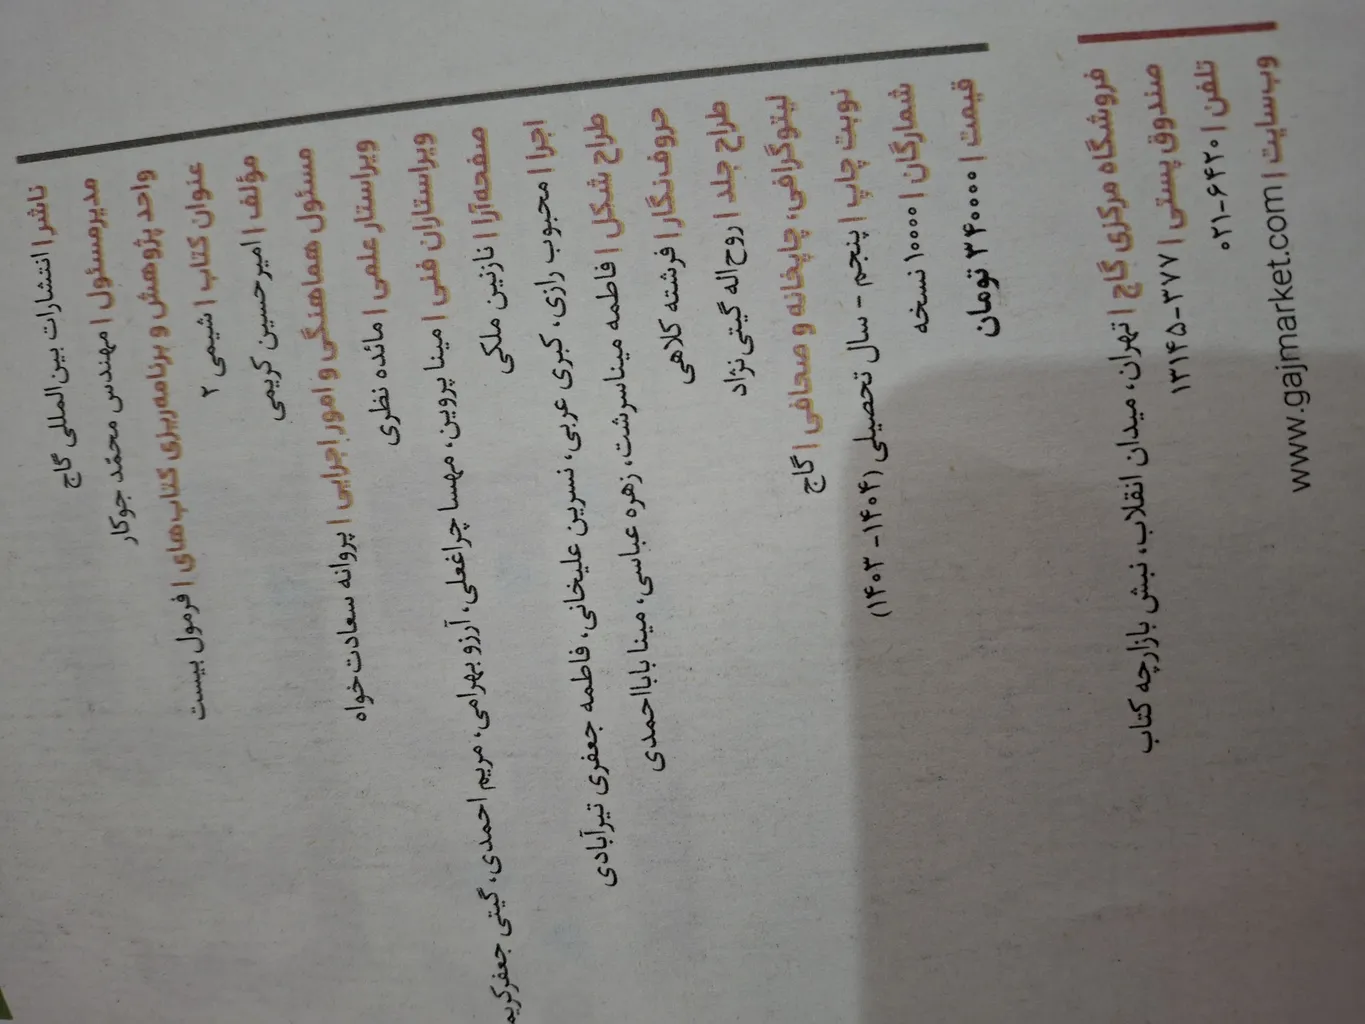 ناشر | انتشارات بین‌المللی گاج
مدیرمسئول | مهندس محمّد جوکار
واحد پژوهش و برنامه‌ریزی کتاب‌های | فرمول بیست
عنوان کتاب | شیمی ۲
مؤلف | امیرحسین کریمی
مسئول هماهنگی و امور اجرایی | پروانه سعادت‌خواه
ویراستار علمی | مائده نظری
ویراستاران فنی | مینا پروین، مهسا چراغعلی، آرزو بهرامی، مریم احمدی، گیتی جعفرکریم
صفحه‌آرا | نازنین ملکی
اجرا | محبوب رازی، کبری عربی، نسرین علیخانی، فاطمه جعفری تیرآبادی
طراح شکل | فاطمه میناسرشت، زهره عباسی، مینا بابااحمدی
حروف‌نگار | فرشته کلاهی
طراح جلد | روح‌اله گیتی‌نژاد
لیتوگرافی، چاپخانه و صحافی | گاج
نوبت چاپ | پنجم - سال تحصیلی (۱۴۰۴- ۱۴۰۳)
شمارگان | ۱۰۰۰۰ نسخه
قیمت | ۳۴۰۰۰۰ تومان
فروشگاه مرکزی گاج | تهران، میدان انقلاب، نبش بازارچه کتاب
صندوق پستی | ۳۷۷-۱۳۱۴۵
تلفن | ۰۲۱-۶۴۲۰
وب‌سایت | www.gajmarket.com